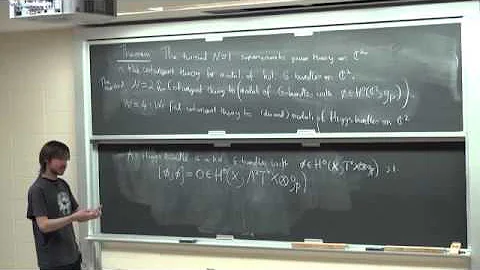 Theorem The twisted N=1 supersymmetric gauge theory on ℂ²
is the cotangent theory for moduli of hol. G-bundles on ℂ².
N=2 is (cotangent theory to (moduli of G-bundles with φ∈H⁰(ℂ², g_P))
N=4: We find cotangent theory to (derived) moduli of Higgs bundles on ℂ²
A Higgs bundle is a hol G-bundle with φ∈H⁰(X, T*X⊗g_P) s.t.
[φ,φ] = 0 ∈ H⁰(X, Λ²T*X⊗g_P)